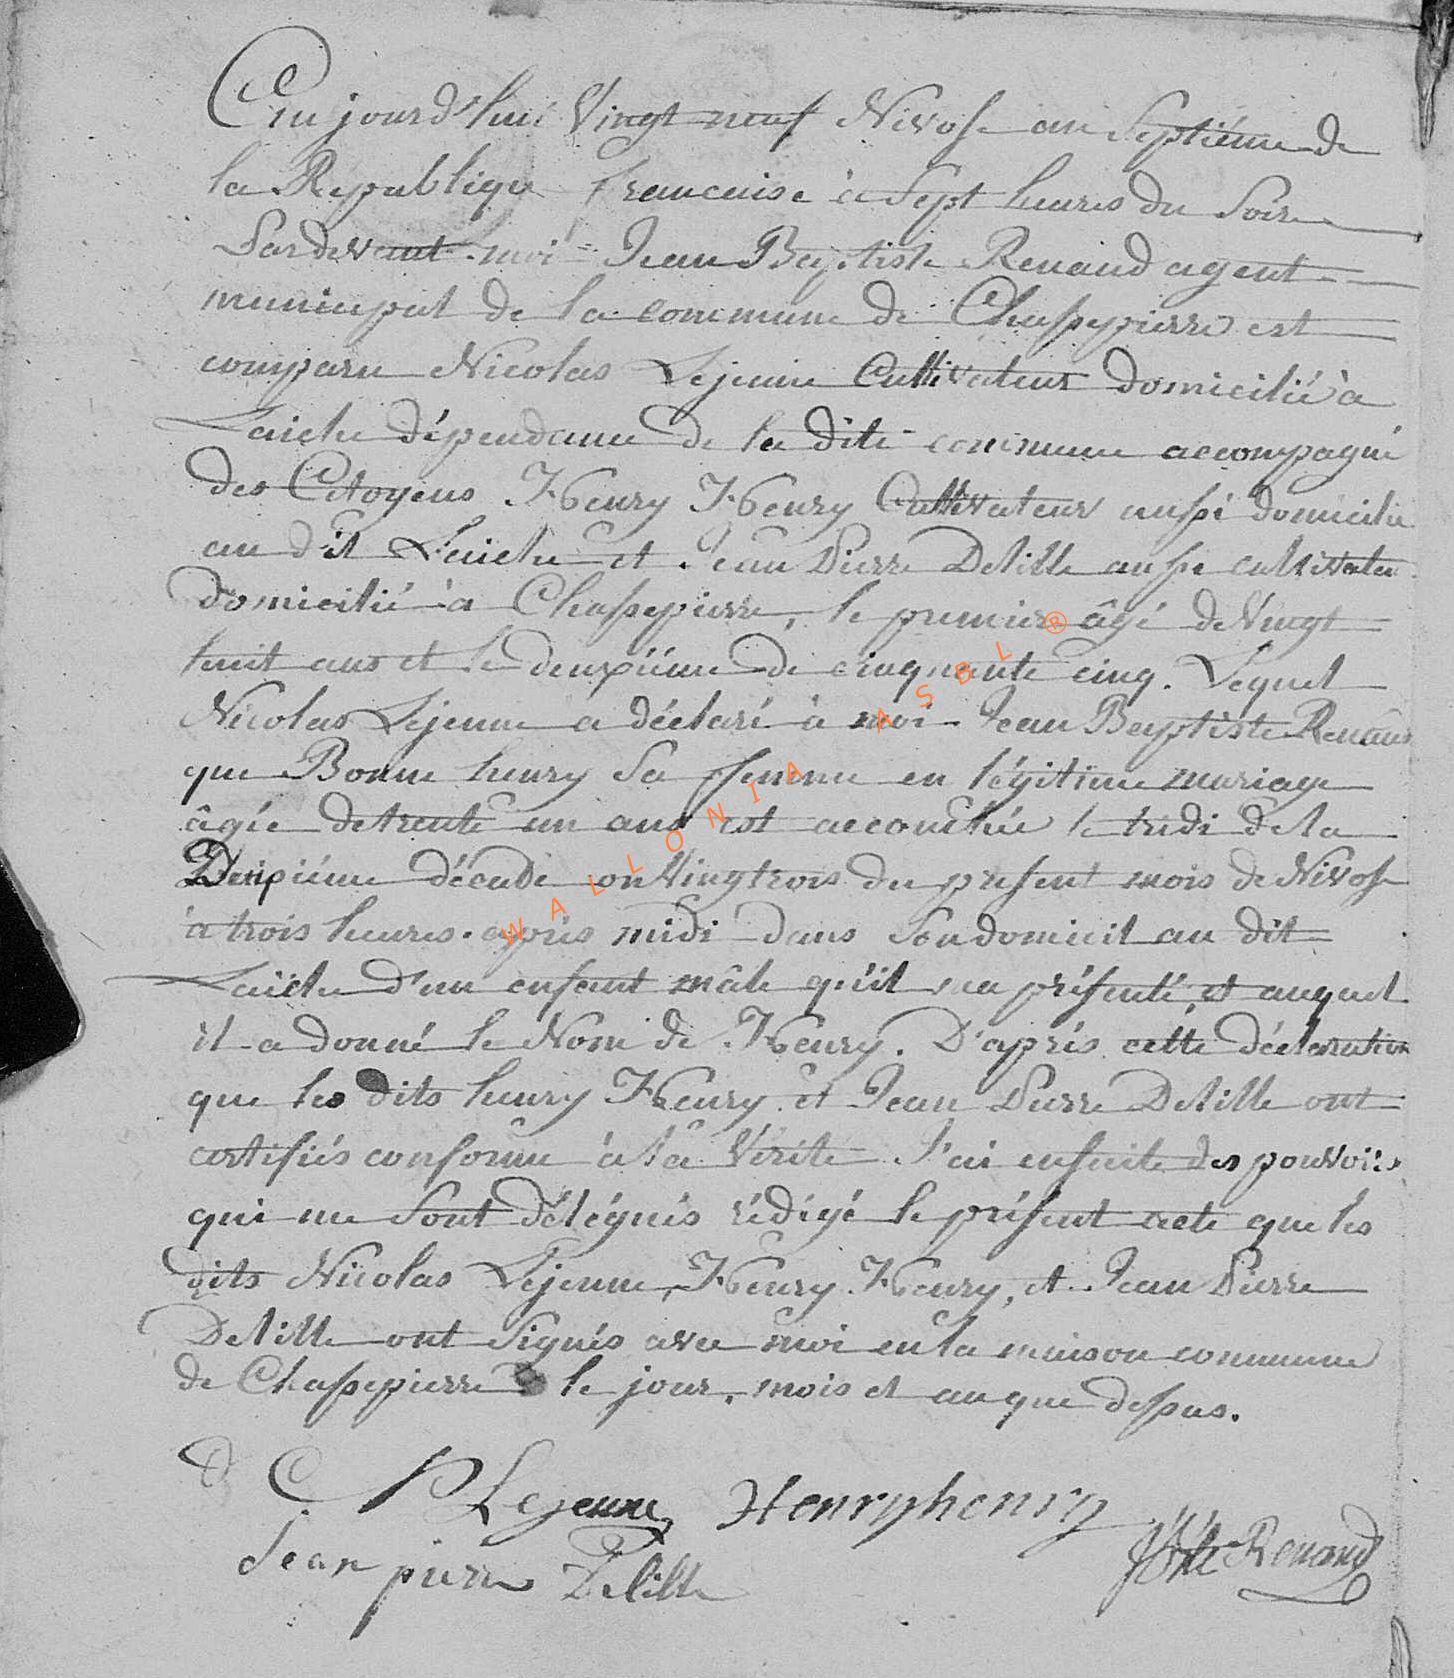 Aujourd'hui Vingt neuf Nivose an Septiéme de
la Republique francaise à Sept heures du Soir
Pardevant moi Jean Baptiste Renaud agent
municipal de la commune de Chassepierre est
comparu Nicolas Lejeune Cultivateur domicilié à
Laiche dépendance de la dite commune accompagné
des Citoyens Henry Henry Cultivateur aussi domicilié
au dit Laiche et Jean Pierre Delille aussi cultivateur
domicilié à Chassepierre, le premier âgé de Vingt
huit ans et le deuxiéme de cinquante cinq. Lequel
Nicolas Lejeune a déclaré à moi Jean Baptiste Renaud
que Bonne henry Sa femme en légitime mariage
âgée de trente un ans est accouchée le tridi de la
Deuxiéme décade ou Vingtrois du present mois de Nivose
à trois heures après midi dans Son domicil au dit
Laiche d'un enfant mâle qu'il ma présenté, et auquel
il a donné le Nom de Henry. D'après cette déclaration
que les dits henry Henry et Jean Pierre Delille ont
certifiés conforme à la Vérité J'ai ensuite des pouvoirs
qui me Sont délégués rédigé le présent acte que les
dits Nicolas Lejeune, Henry Henry, et Jean Pierre
Delille ont Signés avec moi en la maison commune
de Chassepierre le jour, mois et an que dessus.
N Lejeune Henry henry
JBte Renaud
Jean pierre Delille
WALLONIA ASBL ®